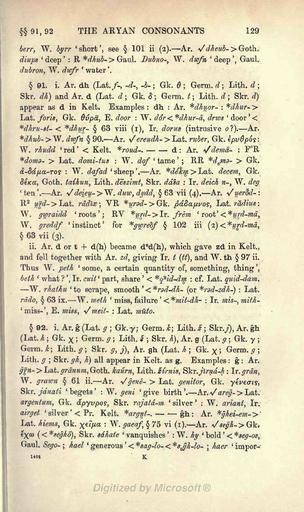 §§ 91, 92 THE ARYAN CONSONANTS 129
berr, W. byrr 'short', see § 101 ii (2).—Ar. √dheub- > Goth.
diups 'deep': R *dhub- > Gaul. Dubno-, W. dwfn 'deep', Gaul.
dubron, W. dwfr 'water'.
§ 91. i. Ar. dh (Lat. f-, -d-, -b-; Gk. θ; Germ. d; Lith. d;
Skr. dh) and Ar. d (Lat. d; Gk. δ; Germ. t; Lith. d; Skr. d)
appear as d in Kelt. Examples: dh:
Lat. foris, Gk. θύρα, E. door: W. dôr
§ 63 viii (1), Ir. dorus (intrusive o?).—Ar.
*dhub- > W. dwfn § 90.—Ar. √ereudh- > Lat. ruber, Gk. ἐρυθρός:
W. rhudd 'red' < Kelt. *roud-. — d: Ar. √demā-
Lat. domi-tus: W. dof 'tame';
W. dafad 'sheep'.—Ar. *dékm̥ > Lat. decem, Gk.
δέκα, Goth. taihun, Lith. Skr. dáśa: Ir. deich n-, W. deg
'ten'.—Ar. W. duw, dydd, § 63 vii (4).—Ar.
Lat. rādīx; Gk. Lat. rādius:
W. gwraidd 'roots'; Ir. frēm 'root'
W. greddf 'instinct' for § 102 iii (2)
§ 63 vii (3).
ii. Ar. d or t + d(h) became dᶻd(h), which gave zd in Kelt.,
and fell together with Ar. zd, giving Ir. t (tt), and W. th § 97 ii.
Thus W. peth 'some, a certain quantity of, something, thing',
beth 'what?', Ir. cuit 'part, share' cf. Lat. quid-dam.
—W. rhathu 'to scrape, smooth' : Lat.
rādo, § 63 ix.—W. meth 'miss, failure' < *mit-dh- : Ir. mis-, mith-
'miss-', E. miss, √meit- : Lat. mūto.
§ 92. i. Ar. ĝ (Lat. g; Gk. γ; Germ. k; Lith. ž; Skr. j), Ar. ĝh
(Lat. h; Gk. χ; Germ. g; Lith. ž; Skr. h), Ar. g (Lat. g; Gk. γ;
Germ. k; Lith. g; Skr. g, j), Ar. gh (Lat. h; Gk. χ; Germ. g;
Lith. g; Skr. gh, h) all appear in Kelt. as g. Examples: ĝ: Ar.
Lat. grānum, Goth. kaúrn, Lith. žìrnis, Skr. : Ir. grān,
W. grawn § 61 ii.—Ar. √ĝenē- > Lat. genitor, Gk. γένεσις,
Skr. jánati 'begets': W. geni 'give birth'.—Ar. √areĝ- > Lat.
argentum, Gk. ἄργυρος, Skr. rajatá-m 'silver': W. ariant, Ir.
airget 'silver' < Pr. Kelt. ĝh: Ar. *ĝhei-em- >
Lat. hiems, Gk. χεῖμα: W. gaeaf, § 75 vi (1).—Ar. √seĝh- > Gk.
ἔχω (< *seĝhō), Skr. sáhate 'vanquishes': W. hy 'bold' < *seg-os,
Gaul. Sego-; hael 'generous' ; haer 'impor-
1402 K
Digitized by Microsoft®